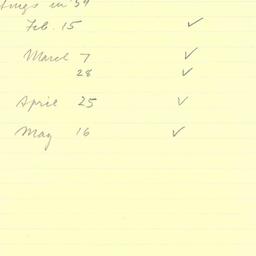 in '54
Feb. 15 ✓
March 7 ✓
28 ✓
April 25 ✓
May 16 ✓